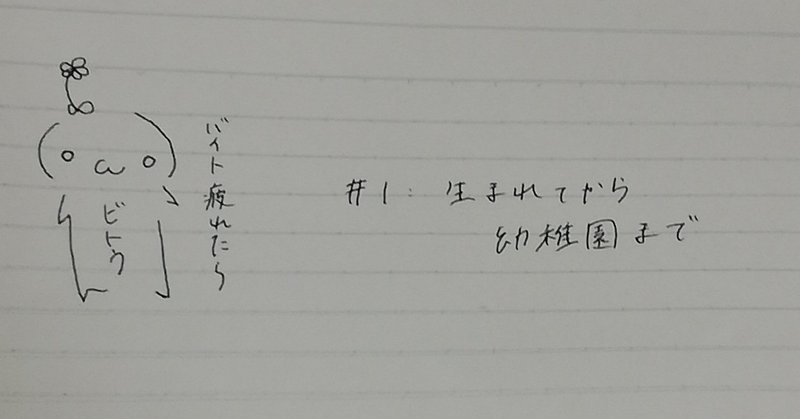 バイト疲れたら
ビトウ
#1: 生まれてから
幼稚園まで